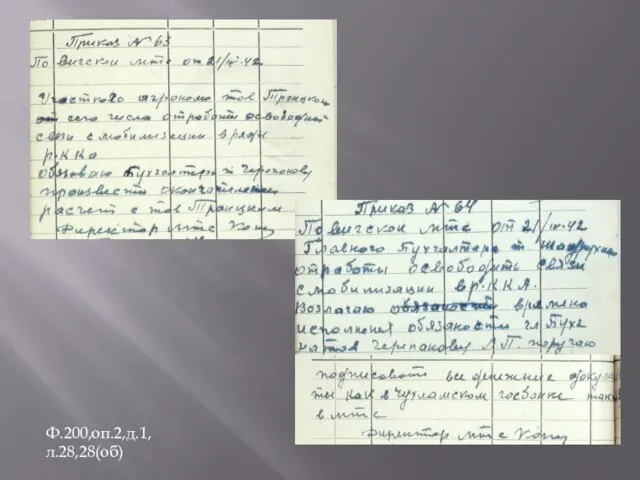 Приказ № 63
По Вигской мтс от 21/IV-42
Участкового агронома тов Троицкого
от сего числа от работы освободить
связи с мобилизации в ряды
р.ККа
обязоваю бухгалтера т Черепокову
произвести окончательной
расчет с тов Троицким
Директор мтс
Приказ № 64
По вигской мтс от 21/IV-42
Главного бухгалтера т
от работы освободить связи
с мобилизации в р.ККА.
Возлагаю обязаность времяна
исполнения обязаности гл Бухг
на тов Черепокову А.П. поручаю
подписовоть все денежние докумен
ты как в Чухламском госбанке так
в мтс
Директор мтс
Ф.200,оп.2,д.1,
л.28,28(об)